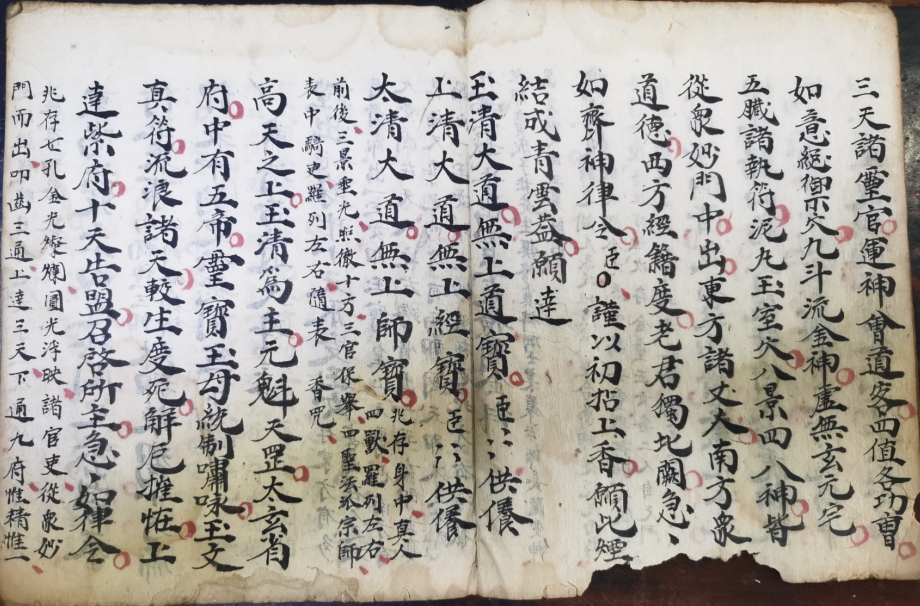 三天諸靈官運神會道客四值各功曹
如意總御宗大九斗流金神虛無玄元宅
五臟諸執符泥丸玉室大八景四八神皆
從眾妙門中出東方諸丈人南方眾
道德西方經籍度老君獨北關急、
如齊神律令臣〇謹以初招上香願此煙
結成青雲蓋願達
玉清大道無上道寶臣〻供養
上清大道無上經寶臣〻供養
太清大道無上師寶兆存身中真人四獸羅列左右
前後三景垂光照徹十方三官保舉四聖 宗師
表中騎吏羅列左右隨表 香咒
高天之上玉清為主元魁天罡太玄省
府中有五帝靈寶玉母統制嘯咏玉文
真符流浪諸天較生度死解厄摧怪上
達紫府十天告盟召啓所主急如律令
兆存七孔金光燦爛圓光浮映諸官吏從眾妙
門而出叩齒三通上達三天下通九府惟精惟一